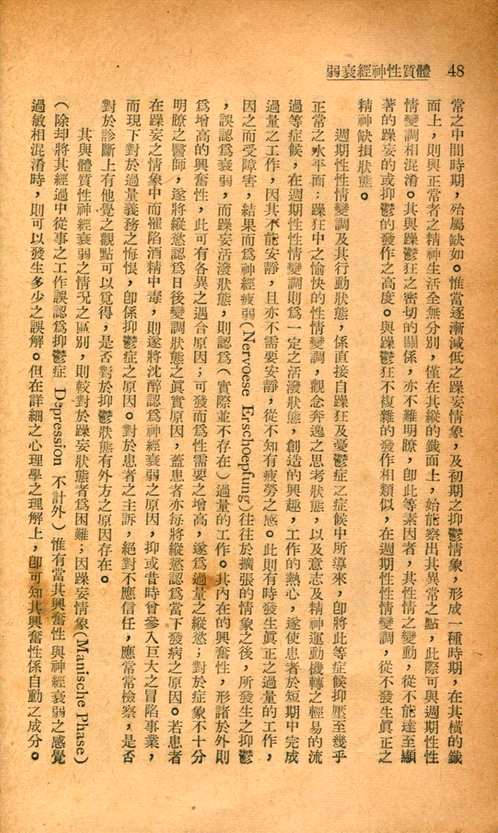 體質性神經衰弱 48
常之中間時期,殆屬缺如。惟當逐漸減低之躁妄情象,及初期之抑鬱情象,形成一種時期,在其橫的鐵
面上,則與正常者之精神生活全無分別,僅在其縱的鐵面上,始能察出其異常之點,此際可與週期性性
情變調相混淆。其與躁鬱狂之密切的關係,亦不難明瞭,卽此等素因者,其性情之變動,從不能達至顯
著的躁妄的或抑鬱的發作之高度。與躁鬱狂不複雜的發作相類似,在週期性性情變調,從不發生眞正之
精神缺損狀態。
週期性性情變調及其行動狀態,係直接自躁狂及憂鬱症之症候中所導來,卽將此等症候抑壓至幾乎
正常之水平而;躁狂中之愉快的性情變調,觀念奔逸之思考狀態,以及意志及精神運動機轉之輕易的流
過等症候,在週期性性情變調則爲一定之活潑狀態,創造的興趣,工作的熱心,遂使患者於短期中完成
過量之工作,因其不能安靜,且亦不需要安靜,從不知有疲勞之感。此則有時發生眞正之過量的工作,
因之而受障害,結果而爲神經疲弱(Nervoese Erschoepfung)往往於擴張的情象之後,所發生之抑鬱
,誤認爲衰弱,而躁妄活潑狀態,則認爲(實際並不存在)過量的工作。其內在的興奮性,形諸於外則
爲增高的興奮性,此可有各異之遇合原因;可發而爲性需要之增高,遂爲過量之縱慾;對於症象不十分
明瞭之醫師,遂將縱慾認爲日後變調狀態之眞實原因,蓋患者亦每將縱慾認爲當下發病之原因。若患者
在躁妄之情象中而罹陷酒精中毒,則遂將沈醉認爲神經衰弱之原因,抑或昔時曾參入巨大之冒險事業,
而現下對於過量義務之悔恨,卽係抑鬱症之原因。對於患者之主訴,絕對不應信任,應當常檢察,是否
對於診斷上有他覺之觀點可以覓得,是否對於抑鬱狀態有外方之原因存在。
其與體質性神經衰弱之情況之區別,則較對於躁妄狀態者爲困難;因躁妄情象(Manische Phase)
(除却將其經過中從事之工作誤認爲抑鬱症 Depression 不計外)惟有當其興奮性與神經衰弱之感覺
過敏相混淆時,則可以發生多少之誤解。但在詳細之心理學之理解上,卽可知其興奮性係自動之成分。